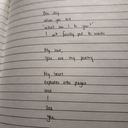 One day
when you ask
"what am I to you?"
I will finally get to recite

My love,
you are my poetry.

My heart
explodes into pages
and
I
see
you.